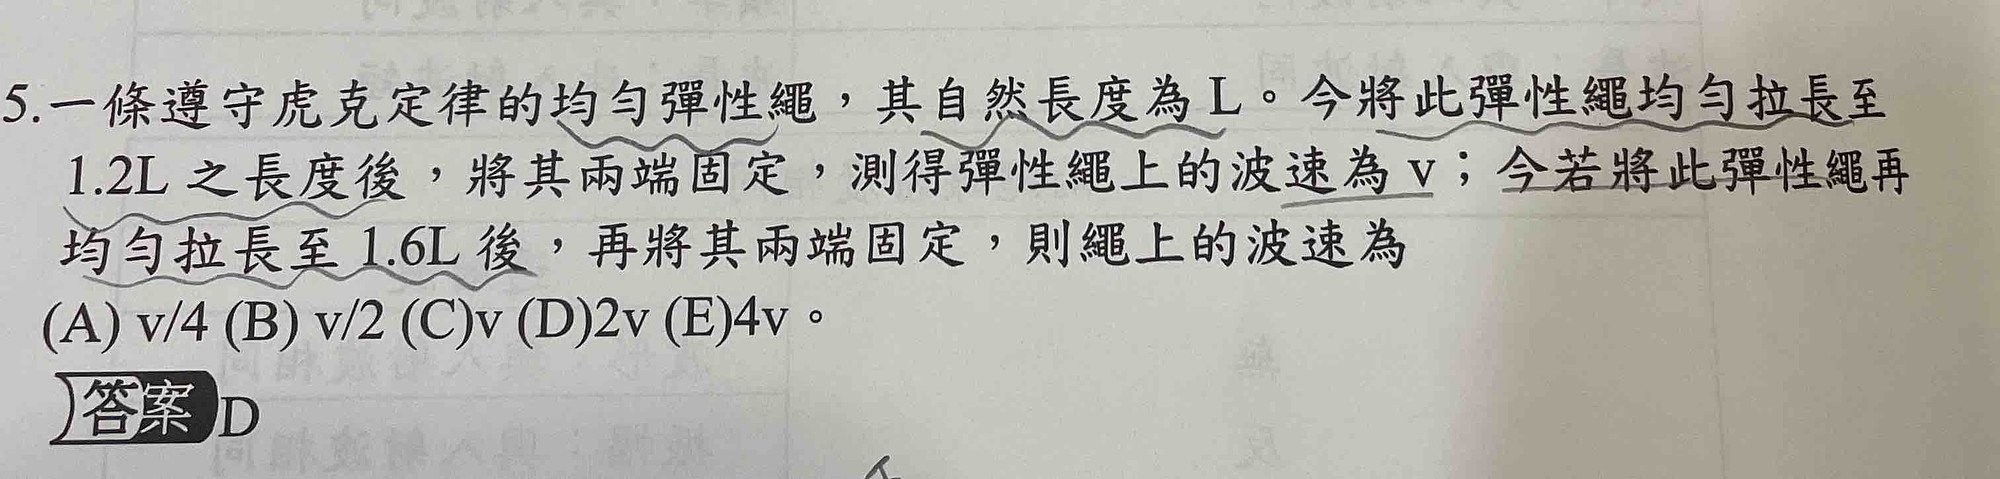 5.一條遵守虎克定律的均勻彈性繩，其自然長度為L。今將此彈性繩均勻拉長至
1.2L之長度後，將其兩端固定，測得彈性繩上的波速為v；今若將此彈性繩再
均勻拉長至1.6L後，再將其兩端固定，則繩上的波速為
(A) v/4 (B) v/2 (C)v (D)2v (E)4v。
答案 D